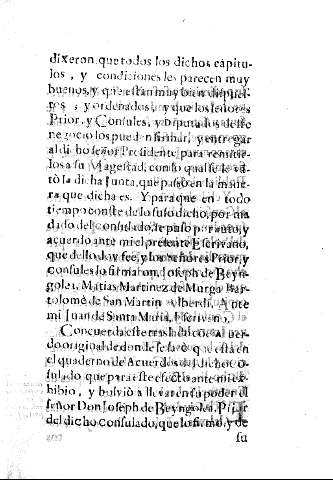 dixeron, que todos los dichos capitu-
los, y condiciones les parecen muy
buenos, y que estan muy bien dispues-
tos, y ordenados, y que los señores
Prior, y Consules, y Diputados deste
negocio los puedan firmar, y entregar
al dicho señor Presidente para remitir-
los a su Magestad, con lo qual se levã-
tò la dicha Junta, que passò en la mane-
ra que dicha es. Y para que en todo
tiempo conste de lo susodicho, por mã
dado del consulado, se puso por auto, y
acuerdo ante mi el presente Escrivano,
que dello doy fee, y los señores Prior, y
Consules lo firmaron, Joseph de Beyn-
golea, Matias Martinez de Murga, Bar-
tolomè de San Martin Alberdi. Ante
mi Juan de Santa Maria, Escrivano.
Concuerda este traslado cõ el acuer-
do original de donde se sacò que està en
el quaderno de Acuerdos del dicho cõ
sulado, que para este efecto ante mi ex-
hibio, y bolviò a llevar en su poder el
señor Don Joseph de Beyngolea, Prior
del dicho consulado, que lo firmò, y de
su